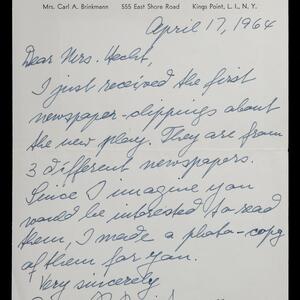 Mrs. Carl A. Brinkmann 555 East Shore Road Kings Point, L. I., N. Y.
April 17, 1964
Dear Mrs. Hecht,
I just received the first
newspaper-clippings about
the new play. They are from
3 different newspapers.
Since I imagine you
would be interested to read
them, I made a photo-copy
of them for you.
Very sincerely